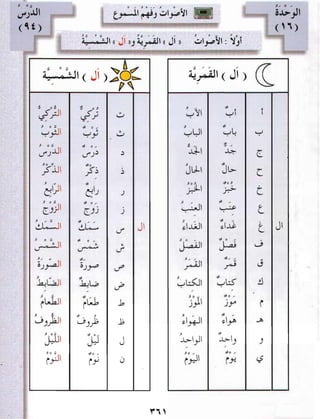 الوحدة
(١٦)
الأصوات وفهم المسموع
الدرس
(٩٤)
أولاً : الأصوات : ( ال ) القمرية و( ال ) الشمسية
( ال ) القمرية
ال
أ أب الأب
ب باب الباب
ج
ح حال الحال
خ خبز الخبز
ع
غ غداء الغداء
ف فصل الفصل
ق قمر القمر
ك كتاب الكتاب
م موز الموز
هـ هواء الهواء
و واحد الواحد
ي يوم اليوم
( ال ) الشمسية
ال
ت تركي التركي
ث ثوب الثوب
د درس الدرس
ذ ذكر الذكر
ر
ز زوج الزوج
س سماء السماء
ش شمس الشمس
ص صورة الصورة
ض ضابط الضابط
ط طعام الطعام
ظ ظروف الظروف
ل ليل الليل
ن نوم النوم
٣٦١